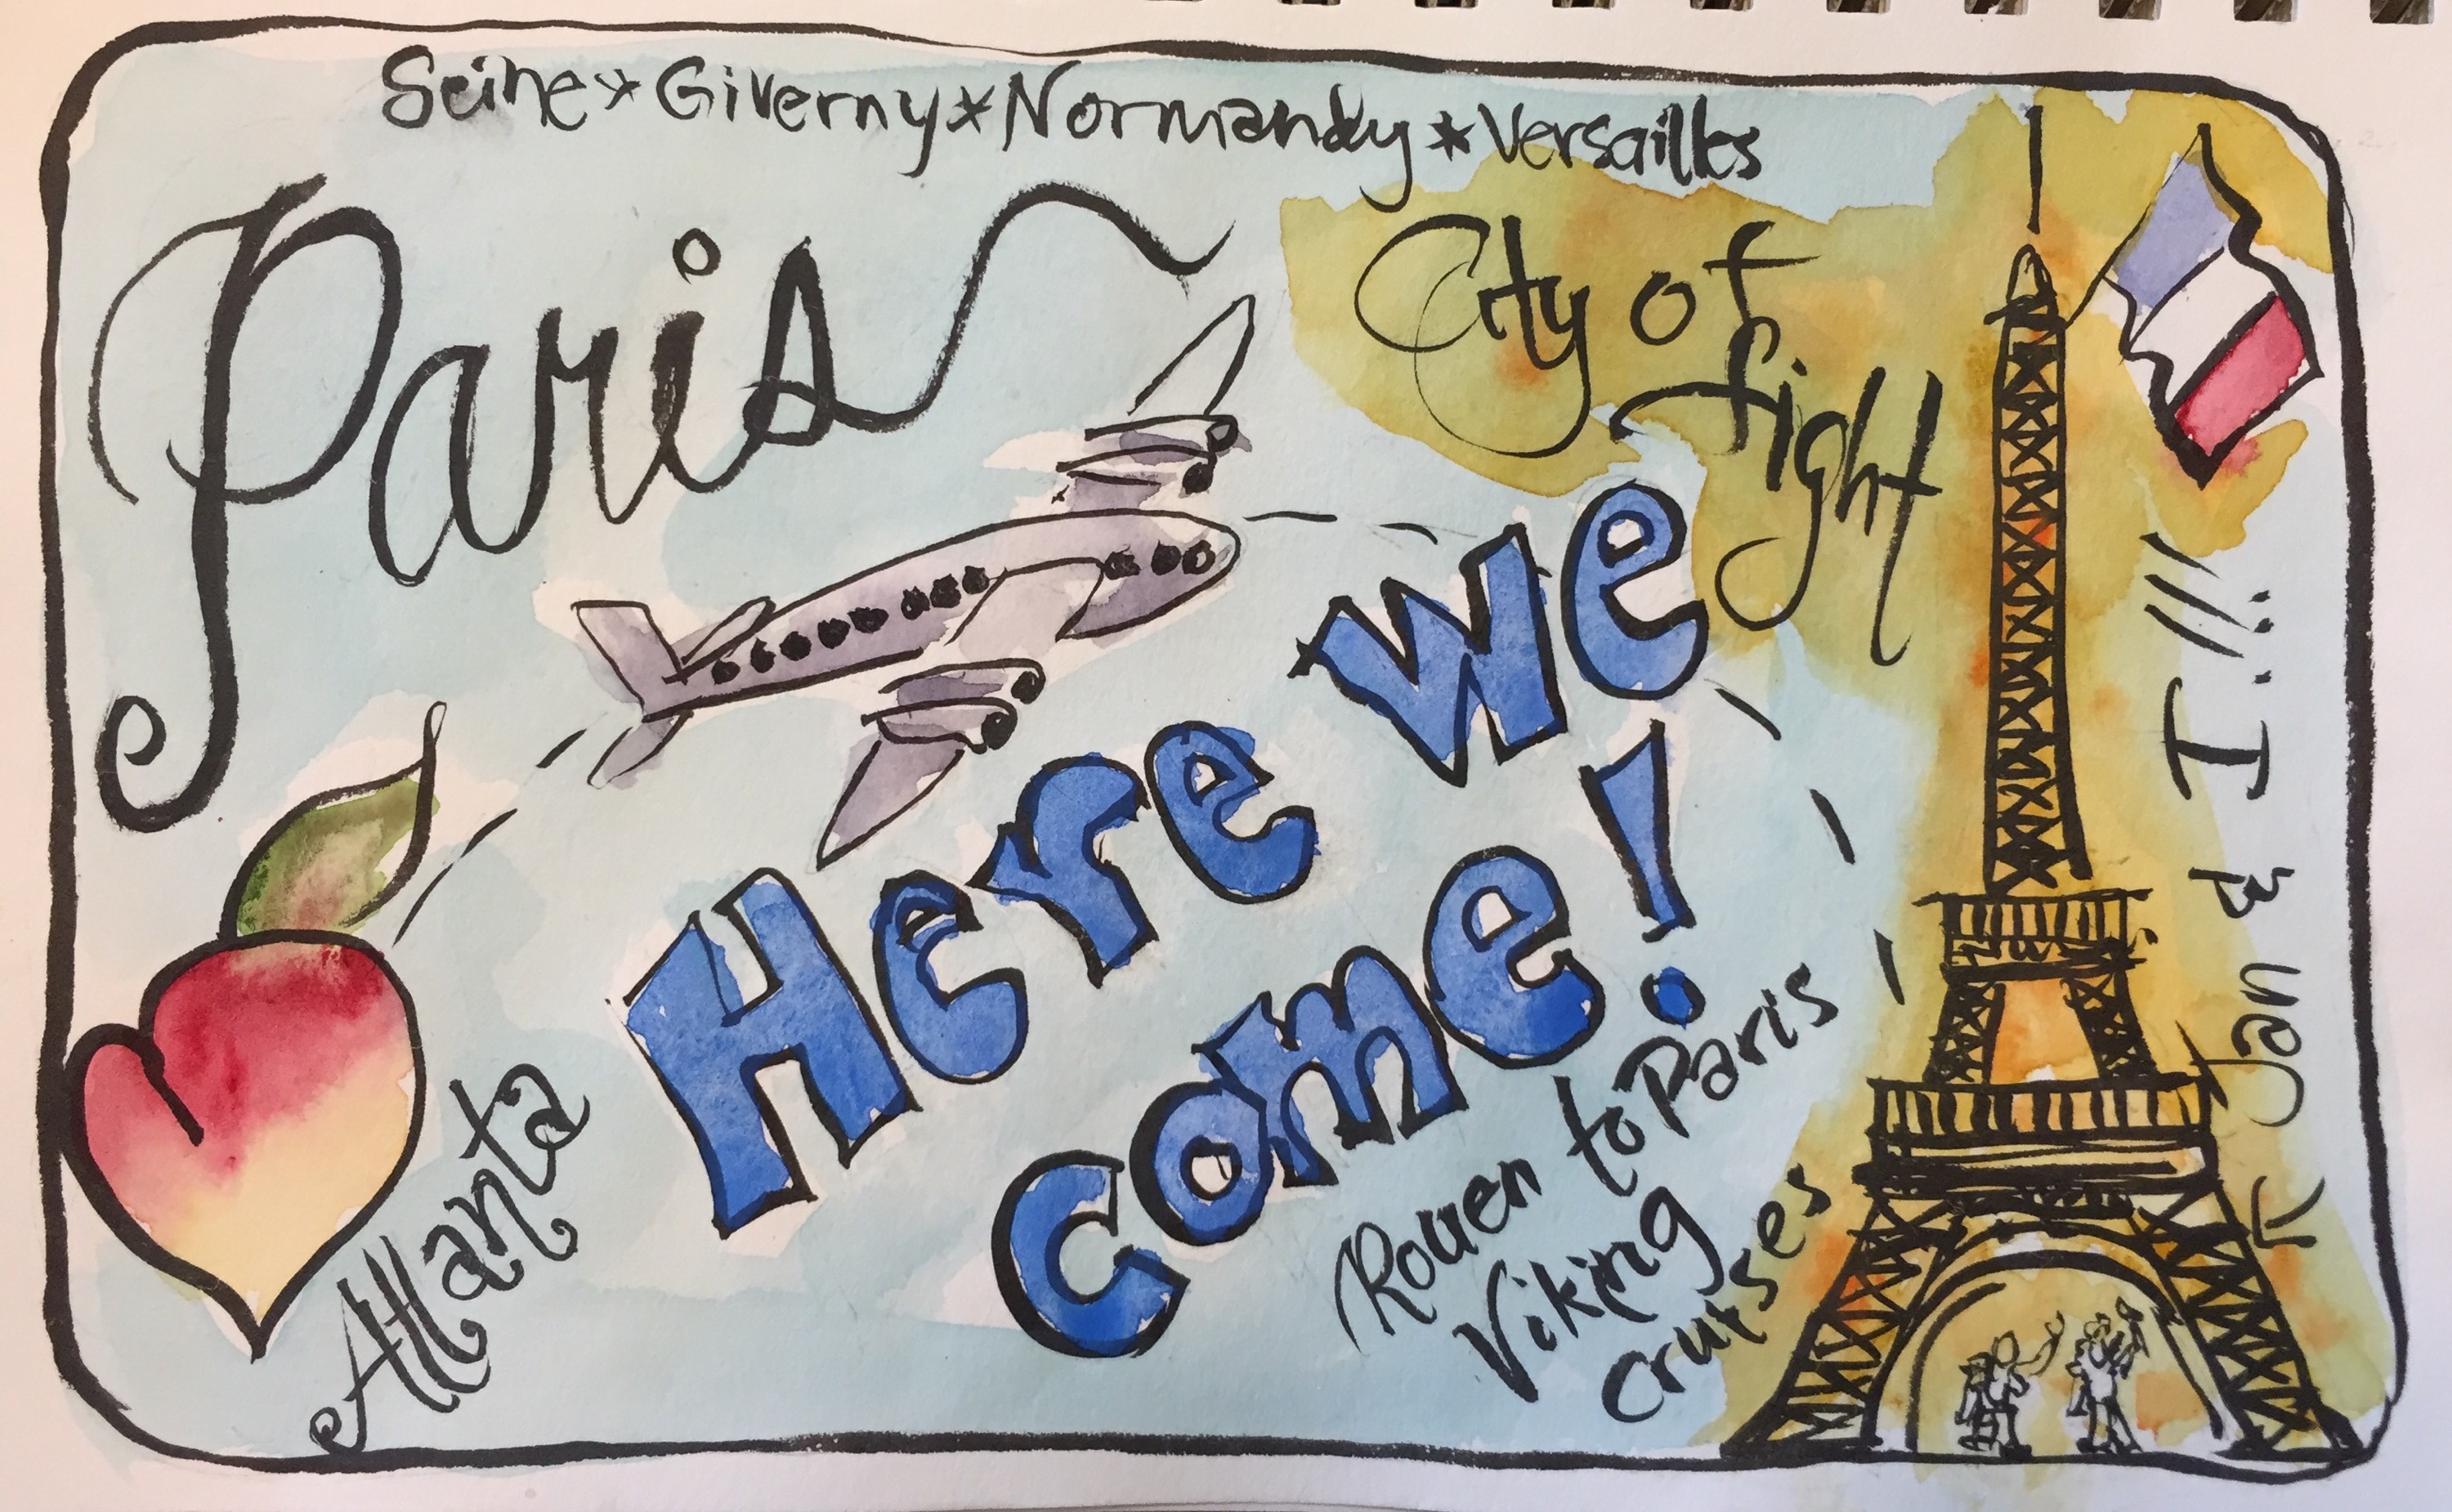 Seine * Giverny * Normandy * Versailles
Paris
City of
Light
Here we
come!
Atlanta
Rouen to Paris
Viking
Cruises
Jan & I !!!